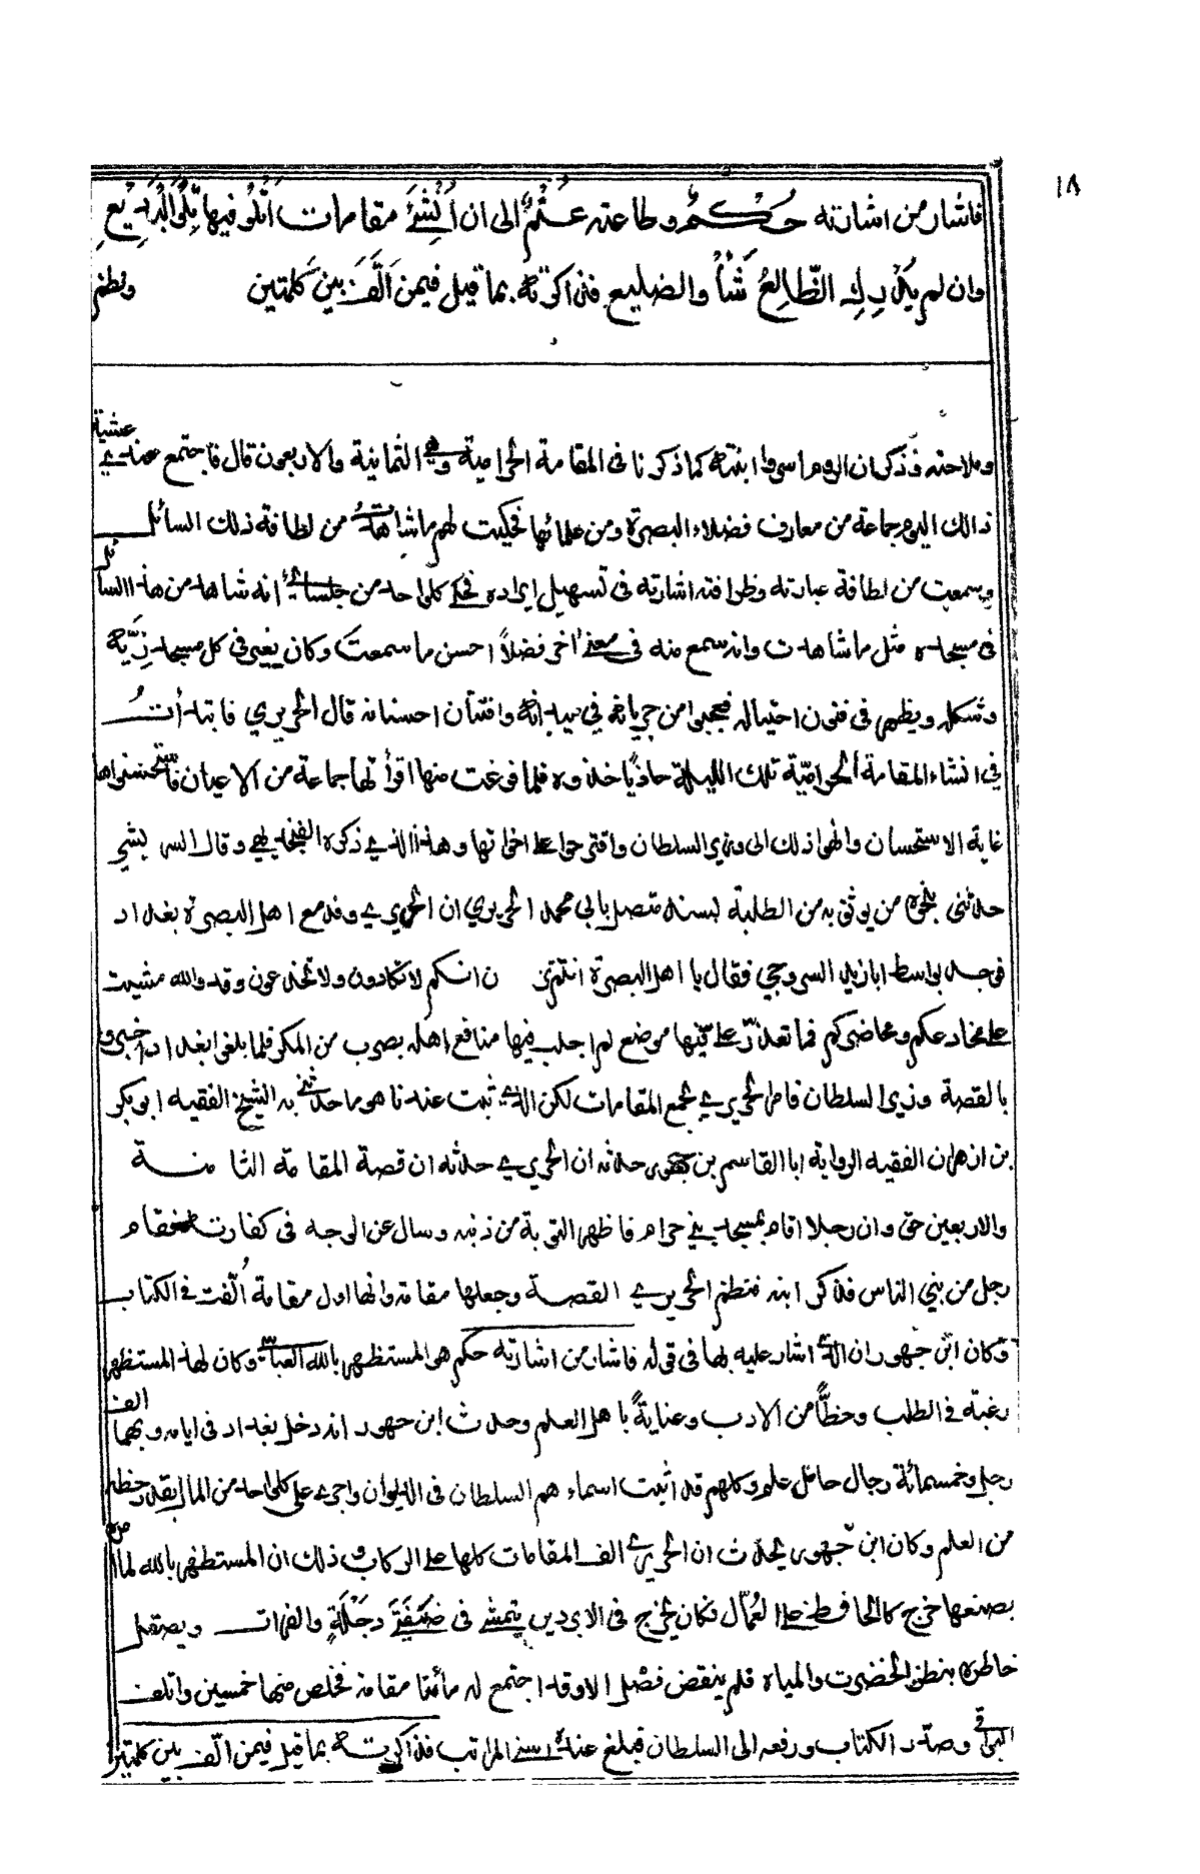 ١٨
فاشار من اشارته حكم وطاعته غنم الى ان انشئ مقامات اتلو فيها تلو البديع
وان لم يدرك الظالع شأو الضليع فذاكرته بما قيل فيمن الّف بين كلمتين ونظم
وملاحته فذكر ان الروم اسروا ابنته كما ذكرنا فى المقامة الحرامية وهي الثمانية والاربعون قال فاجتمع عندي عشية
ذالك اليوم جماعة من معارف فضلاء البصرة ومن علمائها فحكيت لهم ما شاهدت من لطافة ذلك السائل
وسمعت من لطافة عبارته وظرافته اشارته فى تسهيل ايراده فحكى كل واحد من جلسائي انه شاهد من هذا السائل
فى مسجده مثل ما شاهدت وانه سمع منه فى معنى اخر فضلاً احسن ما سمعت وكان يغير فى كل مسجد زيّه
وشكله ويظهر فى فنون احتياله فعجبوا من جريانه في ميدانه وافتنان احسانه قال الحريري فابتدأت
في انشاء المقامة الحراميّة تلك الليلة حاذياً حذوه فلما فرغت منها اقرأتها جماعة من الاعيان فاستحسنوها
غاية الاستحسان وانهوا ذلك الى وزير السلطان واقترحوا على اخواتها وهذا الذي ذكره الفنجديهي وقال الشريشي
حدثنى بنحوه من يوثق به من الطلبة بسند متصل بابي محمد الحريري ان الحريري وفد مع اهل البصرة بغداد
فوجد بواسط ابا زيد السروجي فقال يا اهل البصرة انكم لا تكادون ولا تخدعون وقد والله مشيت
على مخادعكم ومحاضركم فما تعذر على فيها موضع لم اجلب فيها منافع اهله بضرب من المكر فلما بلغوا بغداد اخبروا
بالقصة وزير السلطان فامر الحريري بجمع المقامات لكن الذي ثبت عندنا هو ما حدثني به الشيخ الفقيه ابوبكر
بن ازهر ان الفقيه الرواية ابا القاسم بن جهور حدثه ان الحريري حدثه ان قصة المقامة الثامنة
والاربعين حق وان رجلا اقام بمسجد بني حرام فاظهر التوبة من ذنبه وسال عن الوجه فى كفارته فقام
رجل من بني الناس فذكر ابنه فنظم الحريري القصة وجعلها مقامة وانها اول مقامة اُلّفت فى الكتاب
وكان ابن جهور ان الذي اشار عليه بها فى قوله فاشار من اشارته حكم هو المستظهر بالله العباسي وكان لهذا المستظهر
رغبة فى الطلب وحظًّا من الادب وعنايةً باهل العلم وحدث ابن جهور انه دخل بغداد فى ايامه وبها الف
رجل وخمسمائة رجال حامل علم وكلهم قد اثبت اسماءهم السلطان فى الديوان واجرى على كل واحد من المال بقدر حظه
من العلم وكان ابن جهور يحدث ان الحريري الف المقامات كلها على الركاب وذلك ان المستظهر بالله لما امره
بصنعها خرج كالحافظ على العُمّال فكان يخرج فى الابردين يتمشى فى ضفتي دجلة والفرات ويصقل
خاطره بنظر الخضرت والمياه فلم ينقض فصل الا وقد اجتمع له مائتا مقامة فخلص منها خمسين واتلف
البواقي وصدر الكتاب ورفعه الى السلطان فبلغ عنده اسنى المراتب فذاكرته بما قيل فيمن الّف بين كلمتين